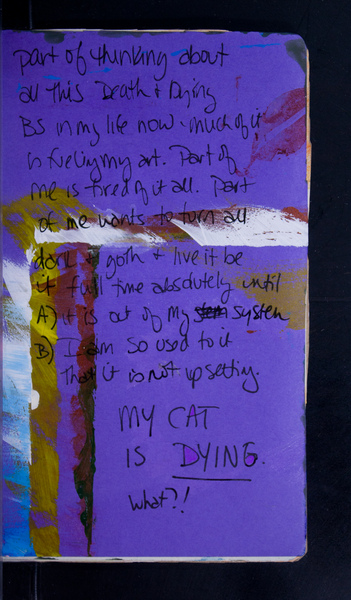 part of thinking about
all this Death + Dying
BS in my life now. much of it
is fueling my art. Part of
me is tired of it all. Part
of me wants to turn all
dark + goth + live it be
it full time absolutely until
A) it is out of my system
B) I am so used to it
that it is not upsetting.
MY CAT
IS DYING.
What?!